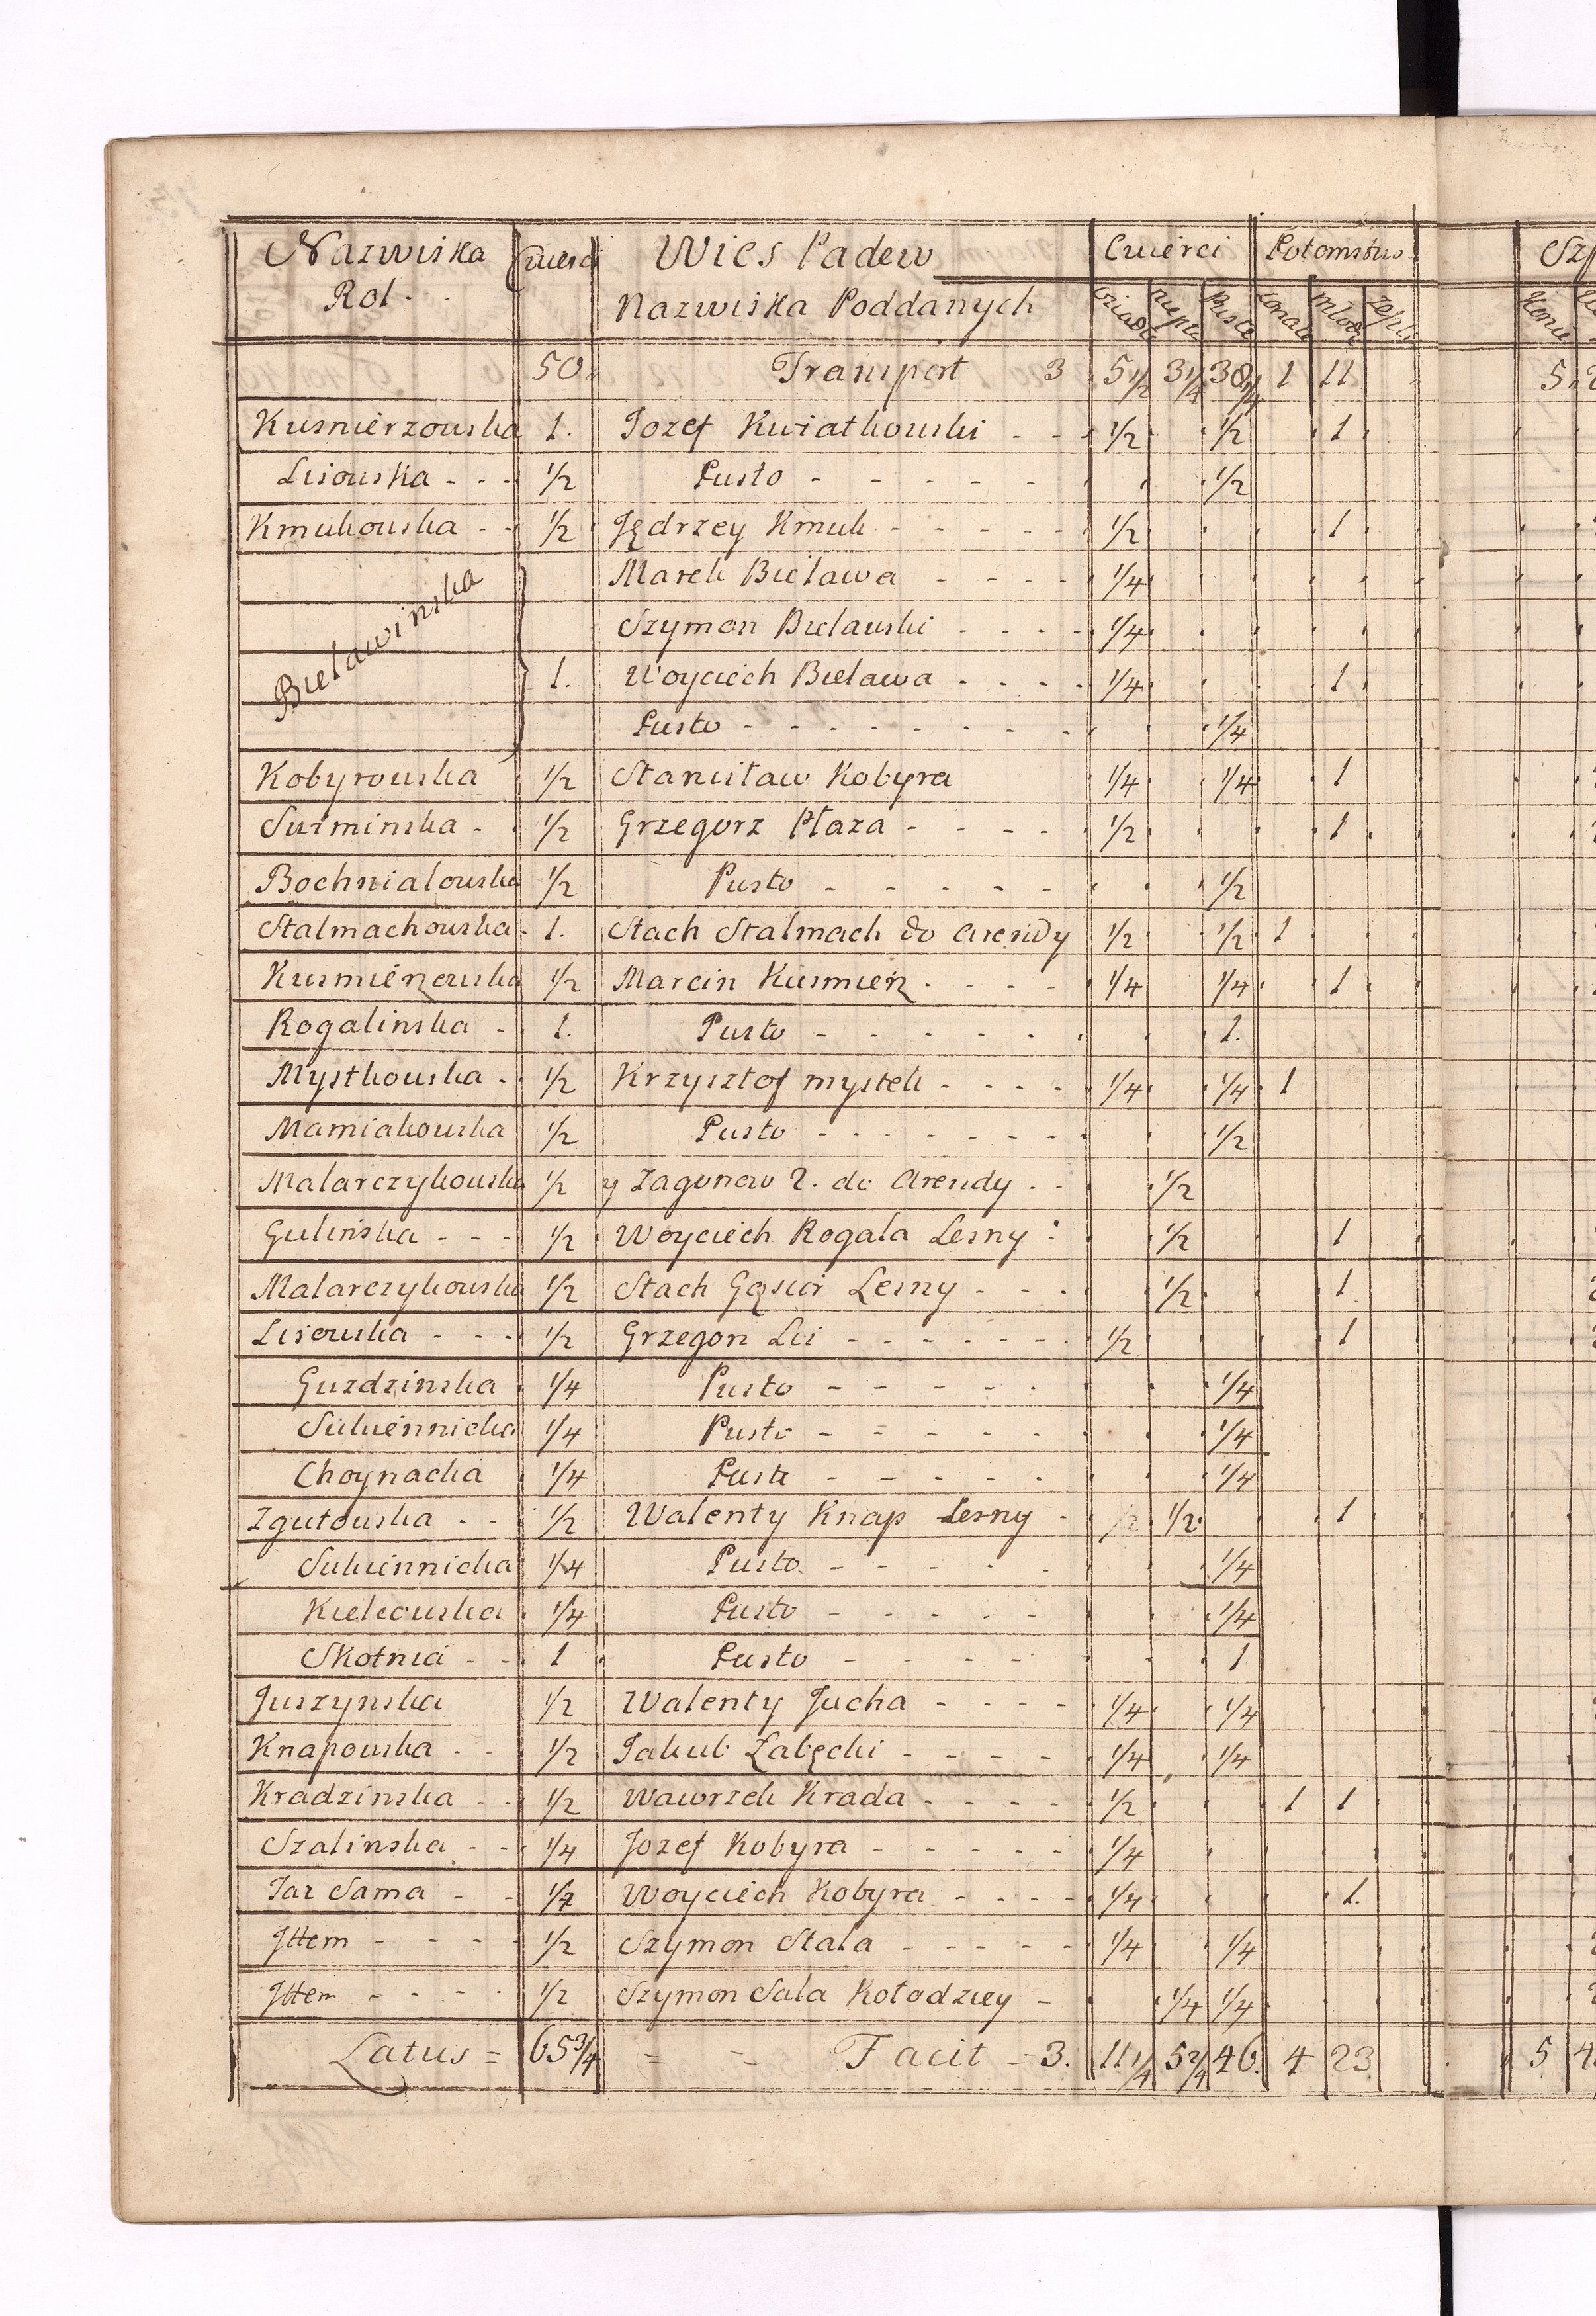 Nazwiska Cwierci Wies Padew Cwierci Potomstwo
Rol - - Nazwiska Poddanych osiadłe Puste żonate młodz
50. Transport 3 5 1/2 3 1/4 1 11 5
Kusnierzowska 1. Jozef Kwiatkowski - - 1/2 1/2 1
Lisowska - - - 1/2 Pusto - - - - - 1/2
Kmukowska - - 1/2 Jędrzey Kmuk - - - - - 1/2 1
Marek Bieława - - - - 1/4
Szymon Bielawski - - - - 1/4
Bieławinska 1. Woyciech Bieława - - - - 1/4 1
Pusto - - - - - - - - 1/4
Kobyrowska 1/2 Stanisław Kobyra 1/4 1/4 1
Surminska - 1/2 Grzegorz Płaza - - - - 1/2 1
Bochnialowska 1/2 Pusto - - - - - 1/2
Stalmachowska 1. Stach Stalmach do arendy 1/2 1/2 1
Kusmierzowska 1/2 Marcin Kusmierz - - - - 1/4 1/4 1
Rogalinska - 1. Pusto - - - - - 1.
Mystkowska - 1/2 Krzysztof mystek - - - - 1/4 1/4 1
Mamiakowska 1/2 Pusto - - - - - - 1/2
Malarczykowska 1/2 y Zagonow 2. do arendy - - 1/2
Gulinska - - - 1/2 Woyciech Rogala Lesny 1/2 1
Malarczykowska 1/2 Stach Gąsior Lesny - - - 1/2 1
Lisowska - - - 1/2 Grzegorz Lis - - - - - - 1/2 1
Guzdzinska 1/4 Pusto - - - - - 1/4
Sukiennicka 1/4 Pusto - - - - - 1/4
Choynacka 1/4 Pusto - - - - - 1/4
Zgutowska - - 1/2 Walenty Knap Lesny - 1/2 1/2 1
Sukiennicka 1/4 Pusto - - - - - 1/4
Kielkowska 1/4 Pusto - - - - - 1/4
Skotnia - - 1 Pusto - - - - - 1
Juszynska 1/2 Walenty Jucha - - - - 1/4 1/4
Knapowska - - 1/2 Jakub Zabęcki - - - - 1/4 1/4
Kradzinska - - 1/2 Wawrzek Krada - - - - 1/2 1 1
Szalinska - - 1/4 Jozef Kobyra - - - - - 1/4
Taz Sama - - 1/4 Woyciech Kobyra - - - - 1/4 1.
Ittem - - - - 1/2 Szymon Stala - - - - - 1/4 1/4
Ittem - - - - 1/2 Szymon Sala Kołodziey - 1/4 1/4
Latus = 65 3/4 = - Facit - 3. 11 1/4 5 2/4 46. 4 23 5